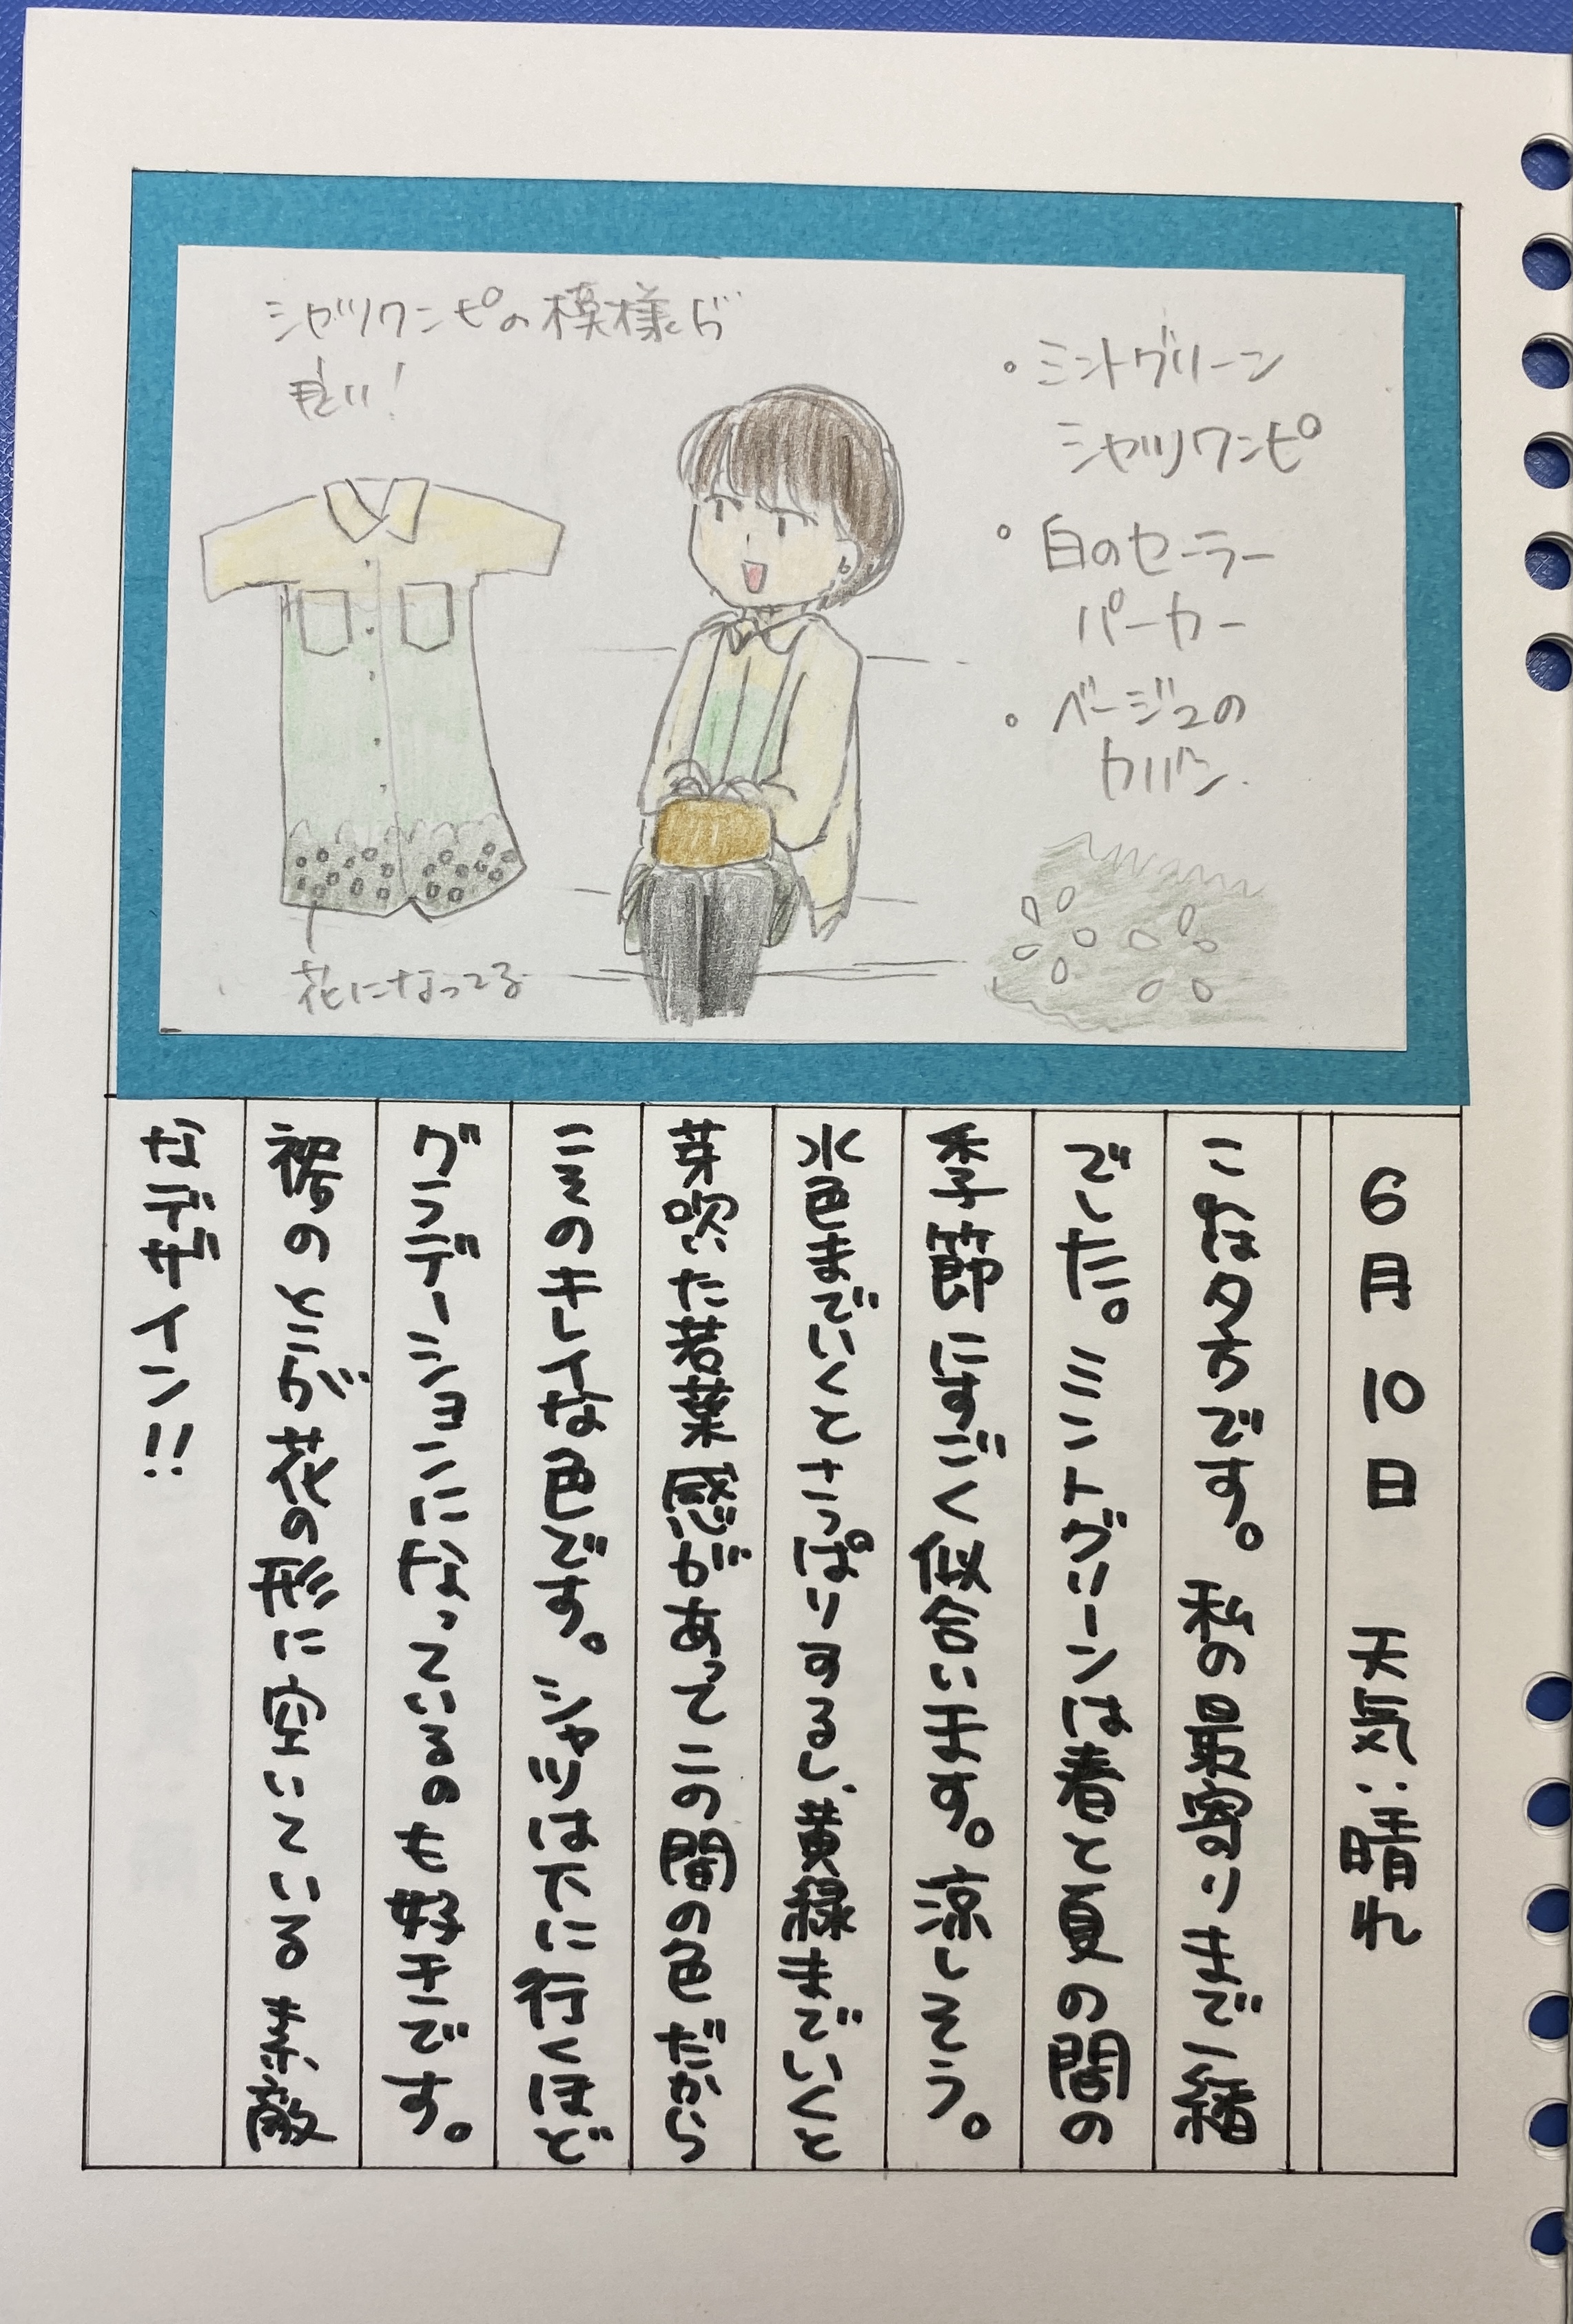 シャツワンピの模様が
良い!
・ミントグリーン
シャツワンピ
・白のセーラー
パーカー
・ベージュの
カバン
花になってる
6月10日 天気:晴れ
です。私の最寄りまで一緒
でした。ミントグリーンは春と夏の間の
季節にすごく似合います。涼しそう。
水色までいくとさっぱりするし、黄緑までいくと
芽吹いた若葉感があってこの間の色だから
こそのキレイな色です。シャツは下に行くほど
グラデーションになっているのも好きです。
裾の 花の形に空いている素敵
なデザイン!!